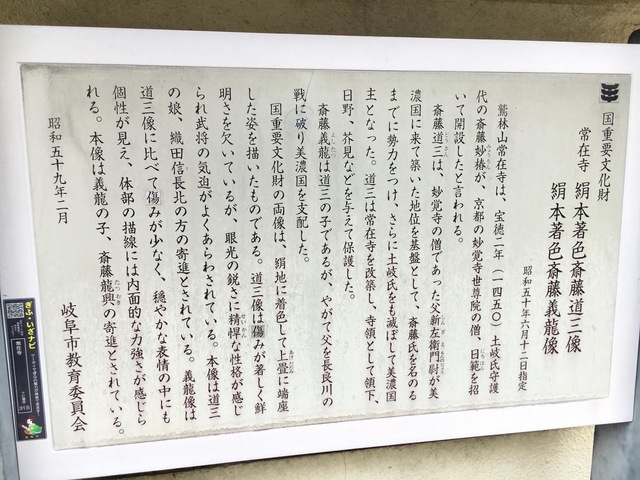 国重要文化財
常在寺 絹本著色斎藤道三像
絹本著色斎藤義龍像
昭和五十年六月十二日指定
鷲林山常在寺は、宝徳二年(一四五〇)土岐氏守護
代の斎藤妙椿が、京都の妙覚寺世尊院の僧、日範を招
いて開設したと言われる。
斎藤道三は、妙覚寺の僧であった父新左衛門尉が美
濃国に来て築いた地位を基盤として、斎藤氏を名のる
までに勢力をつけ、さらに土岐氏をも滅ぼして美濃国
主となった。道三は常在寺を改築し、寺領として領下、
日野、芥見などを与えて保護した。
斎藤義龍は道三の子であるが、やがて父を長良川の
戦に破り美濃国を支配した。
国重要文化財の両像は、絹地に着色して上畳に端座
した姿を描いたものである。道三像は傷みが著しく鮮
明さを欠いているが、眼光の鋭さに精悍な性格が感じ
られ武将の気迫がよくあらわされている。本像は道三
の娘、織田信長北の方の寄進とされている。義龍像は
道三像に比べて傷みが少なく、穏やかな表情の中にも
個性が見え、体部の描線には内面的な力強さが感じら
れる。本像は義龍の子、斎藤龍興の寄進とされている。
昭和五十九年二月
岐阜市教育委員会
ぎふ・いざナビ
常在寺
315